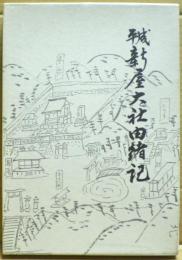 平成新屋大社由緒記